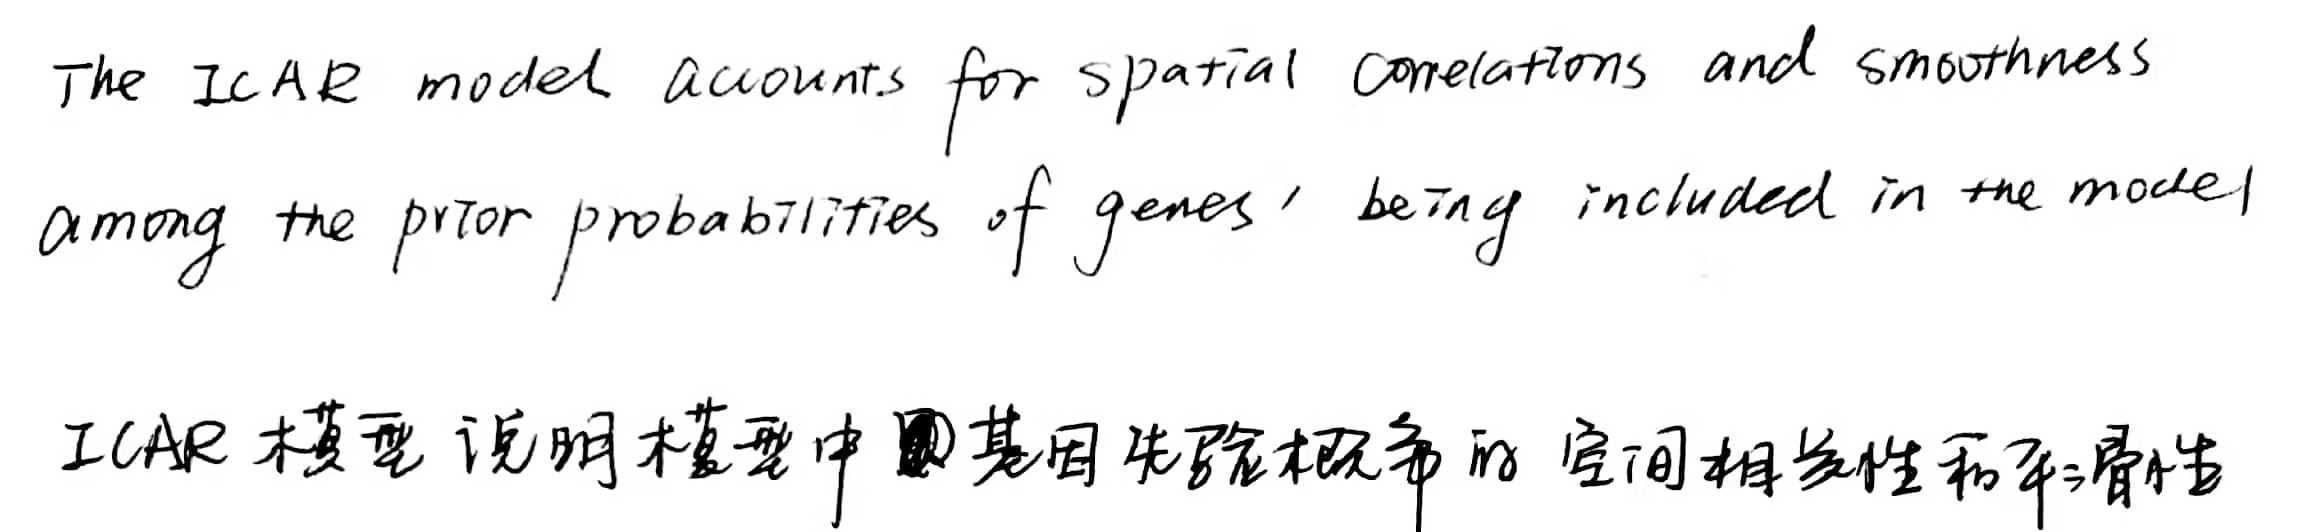 The ICAR model accounts for spatial correlations and smoothness
among the prior probabilities of genes' being included in the model
ICAR 模型 说明模型中基因先验概率的空间相关性和平滑性